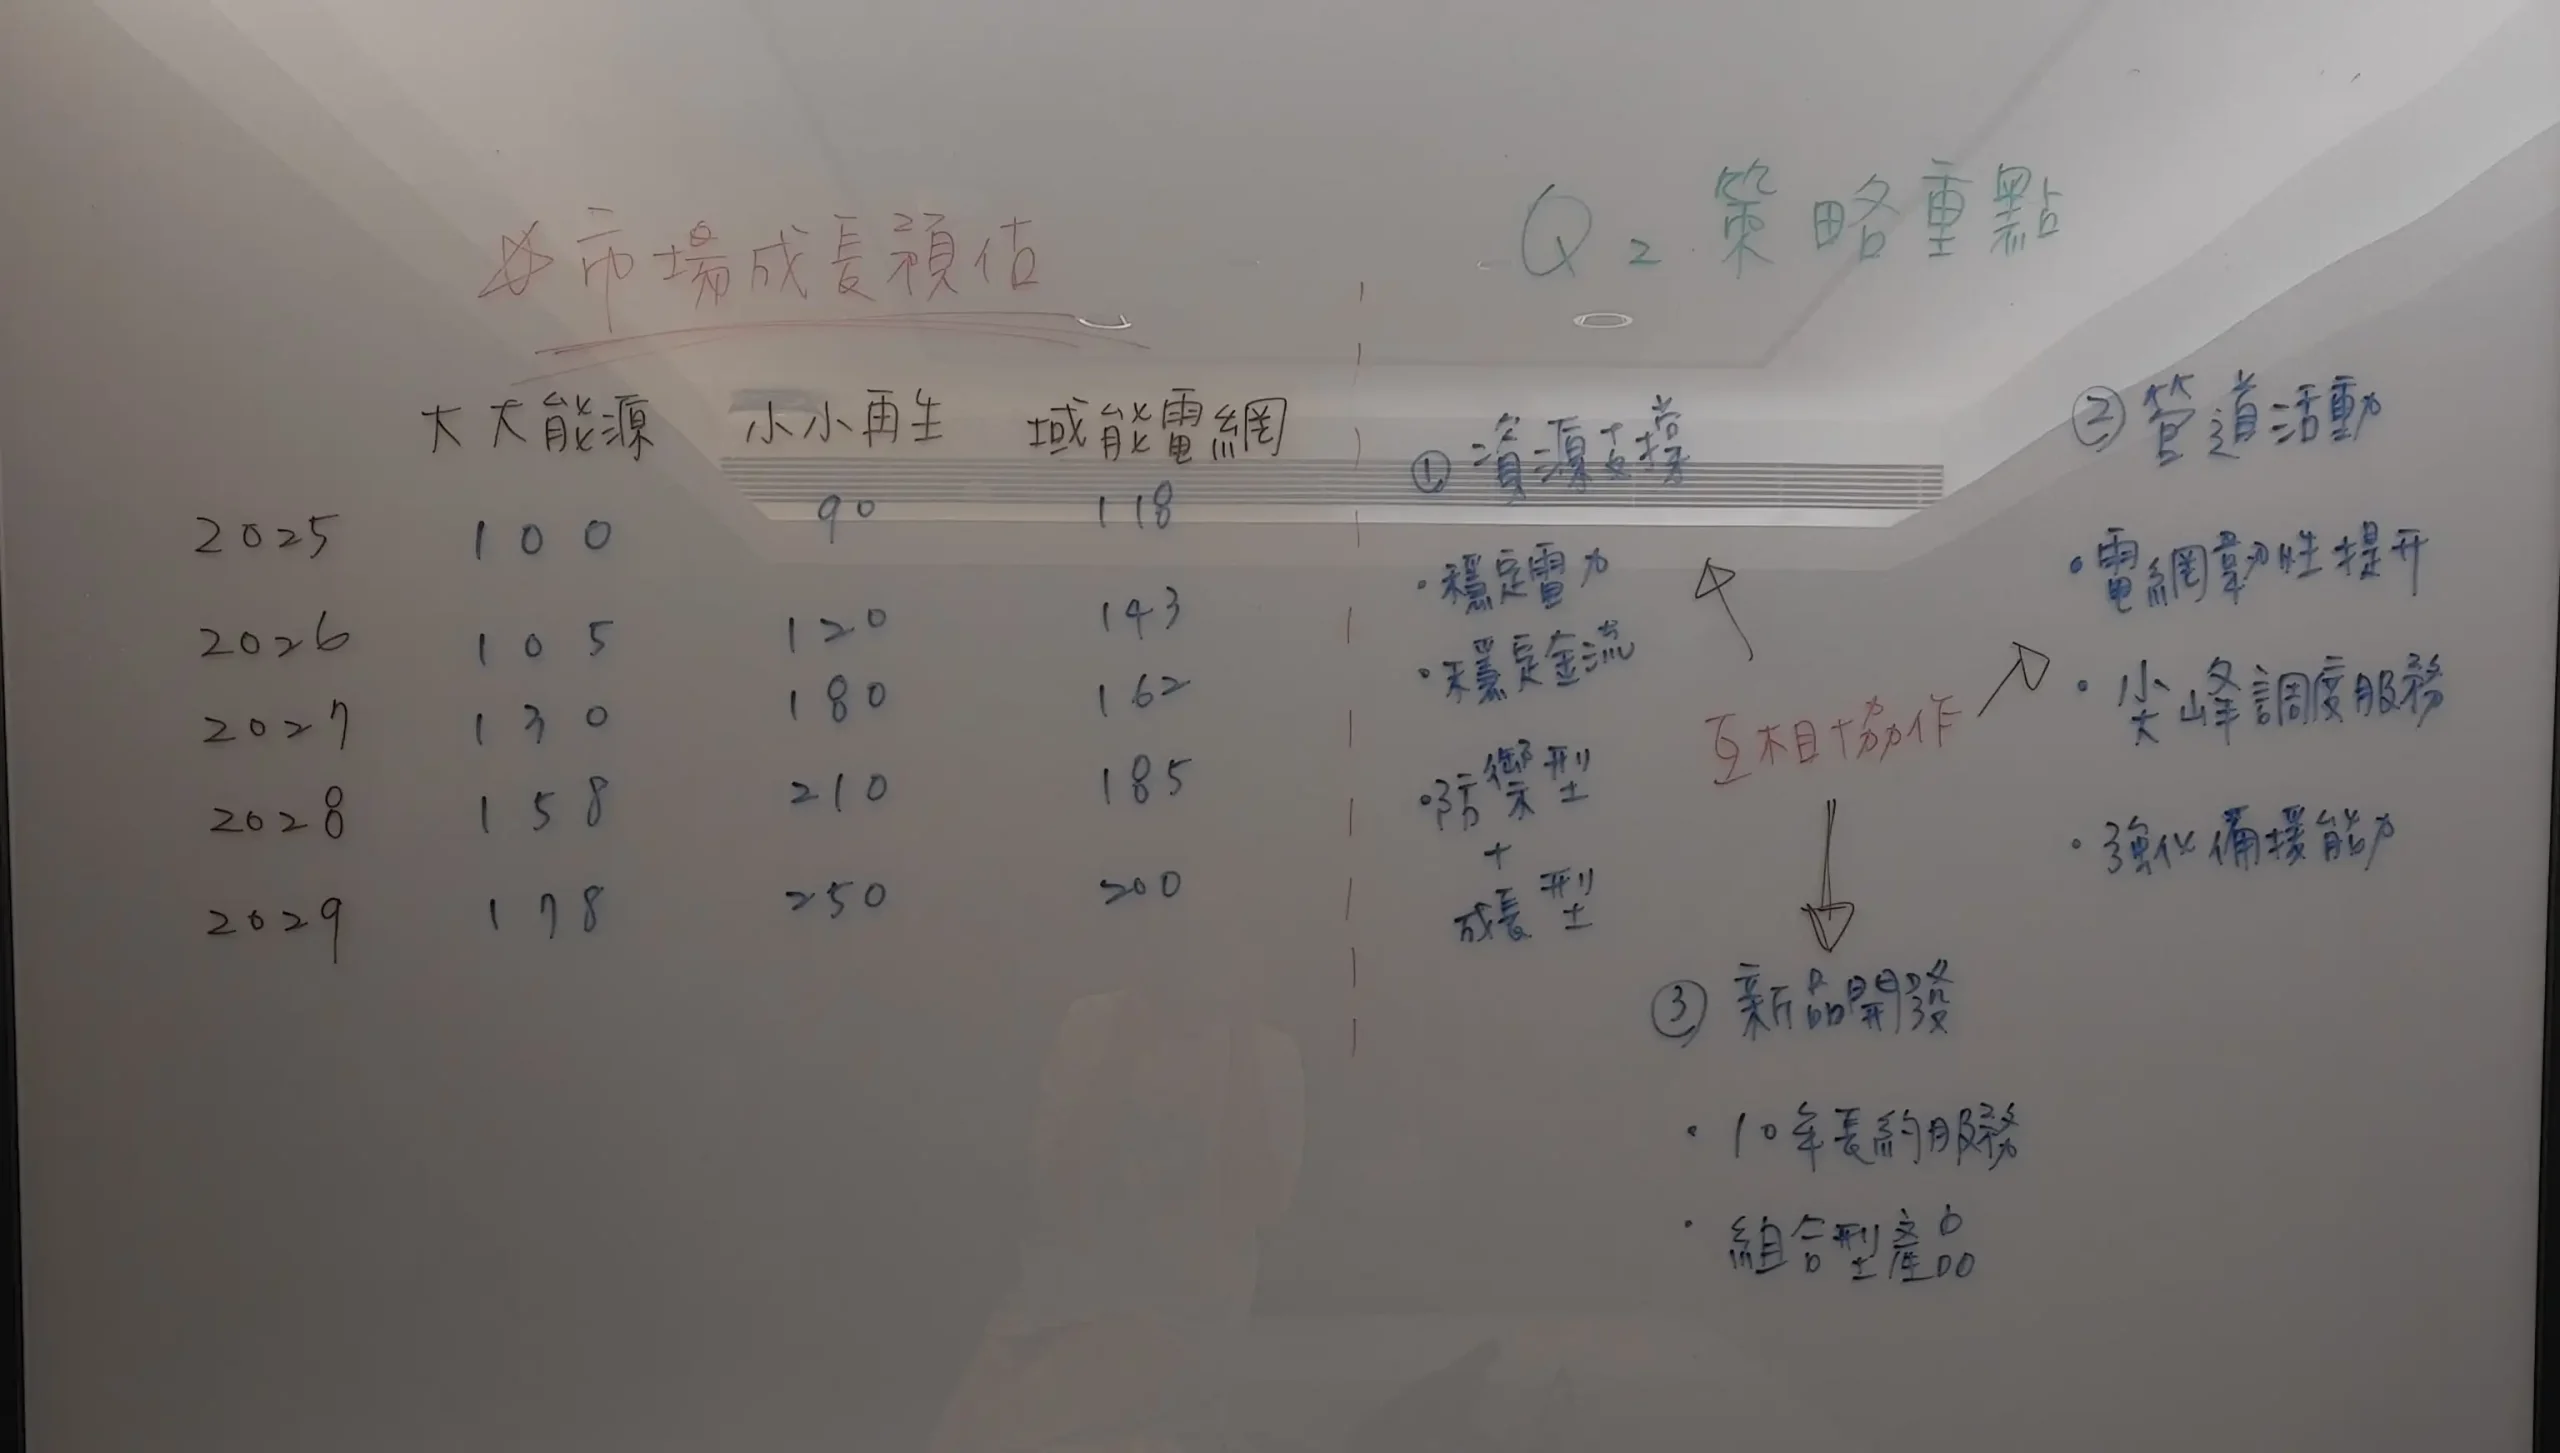 ☆市場成長預估
大大能源 小小再生 域能電網
2025 100 90 118
2026 105 120 143
2027 130 180 162
2028 158 210 185
2029 178 250 200
Q2 策略重點
① 資源支撐
・穩定電力
・穩定金流
・防禦型
+
成長型
② 管道活動
・電網韌性提升
・尖峰調度服務
・強化備援能力
互相協作
③ 新品開發
・10年長約服務
・組合型產品